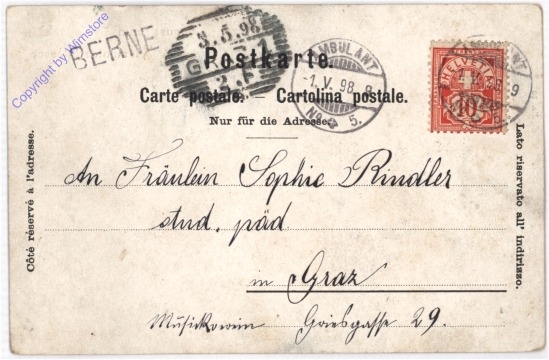 BERNE
3.5.98
Postkarte.
AMBULANT
-1.V.98.-9
No 5.
HELVETIA
10
Carte postale. — Cartolina postale.
Nur für die Adresse.
Côté réservé à l'adresse.
Lato riservato all' indirizzo.
An Fräulein Sophie Rindler
stud. päd
in Graz
Musikverein Griesgasse 29.
Copyright by Wimstore